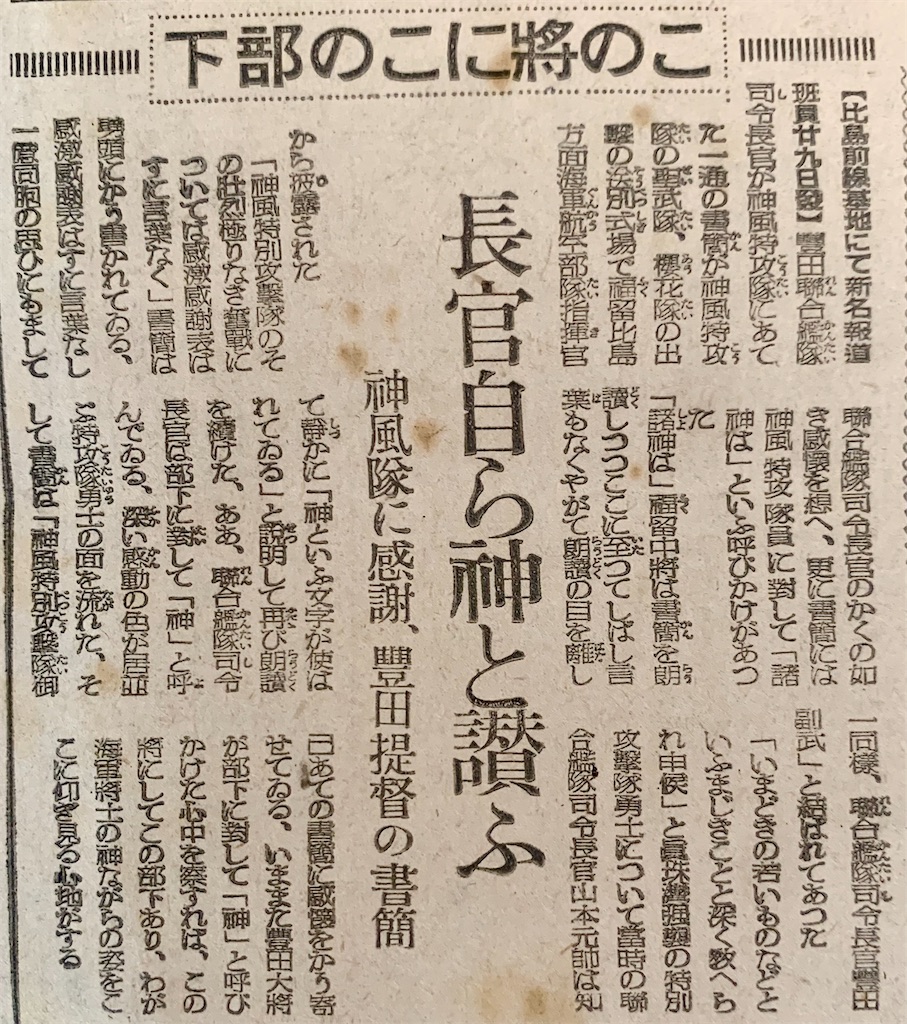 この將にこの部下
長官自ら神と讃ふ
神風隊に感謝、豐田提督の書簡
【比島前線基地にて新名報道
班員廿九日發】豐田聯合艦隊
司令長官が神風特攻隊にあて
た一通の書簡が神風特攻
隊の聖武隊、櫻花隊の出
撃の送別式場で福留比島
方面海軍航空部隊指揮官
から披露された
「神風特別攻撃隊のそ
の壯烈極りなき奮戰に
ついては感激感謝表は
すに言葉なく」書簡は
劈頭にかう書かれてゐる、
感激感謝表はすに言葉なし
一億同胞の思ひにもまして
聯合艦隊司令長官のかくの如
き感懷を想へ、更に書簡には
神風特攻隊員に對して「諸
神は」といふ呼びかけがあつ
た
「諸神は」福留中將は書簡を朗
讀しつつここに至つてしばし言
葉もなくやがて朗讀の目を離し
て靜かに「神といふ文字が使は
れてゐる」と説明して再び朗讀
を續けた、ああ、聯合艦隊司令
長官は部下に對して「神」と呼
んでゐる、深い感動の色が居並
ぶ特攻隊勇士の面を流れた、そ
して書簡は「神風特別攻撃隊御
一同樣、聯合艦隊司令長官豐田
副武」と結ばれてあつた
「いまどきの若いものなどと
いふまじきことと深く教へら
れ申候」と眞珠灣強襲の特別
攻撃隊勇士について當時の聯
合艦隊司令長官山本元帥は知
己あての書簡に感懷をかう寄
せてゐる、いままた豐田大將
が部下に對して「神」と呼び
かけた心中を察すれば、この
將にしてこの部下あり、わが
海軍將士の神ながらの姿をこ
こに仰ぎ見る心地がする